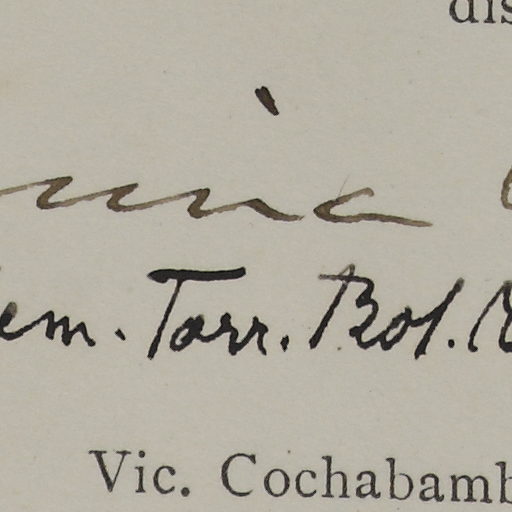 dis
em. Torr. Bot.
Vic. Cochabamb